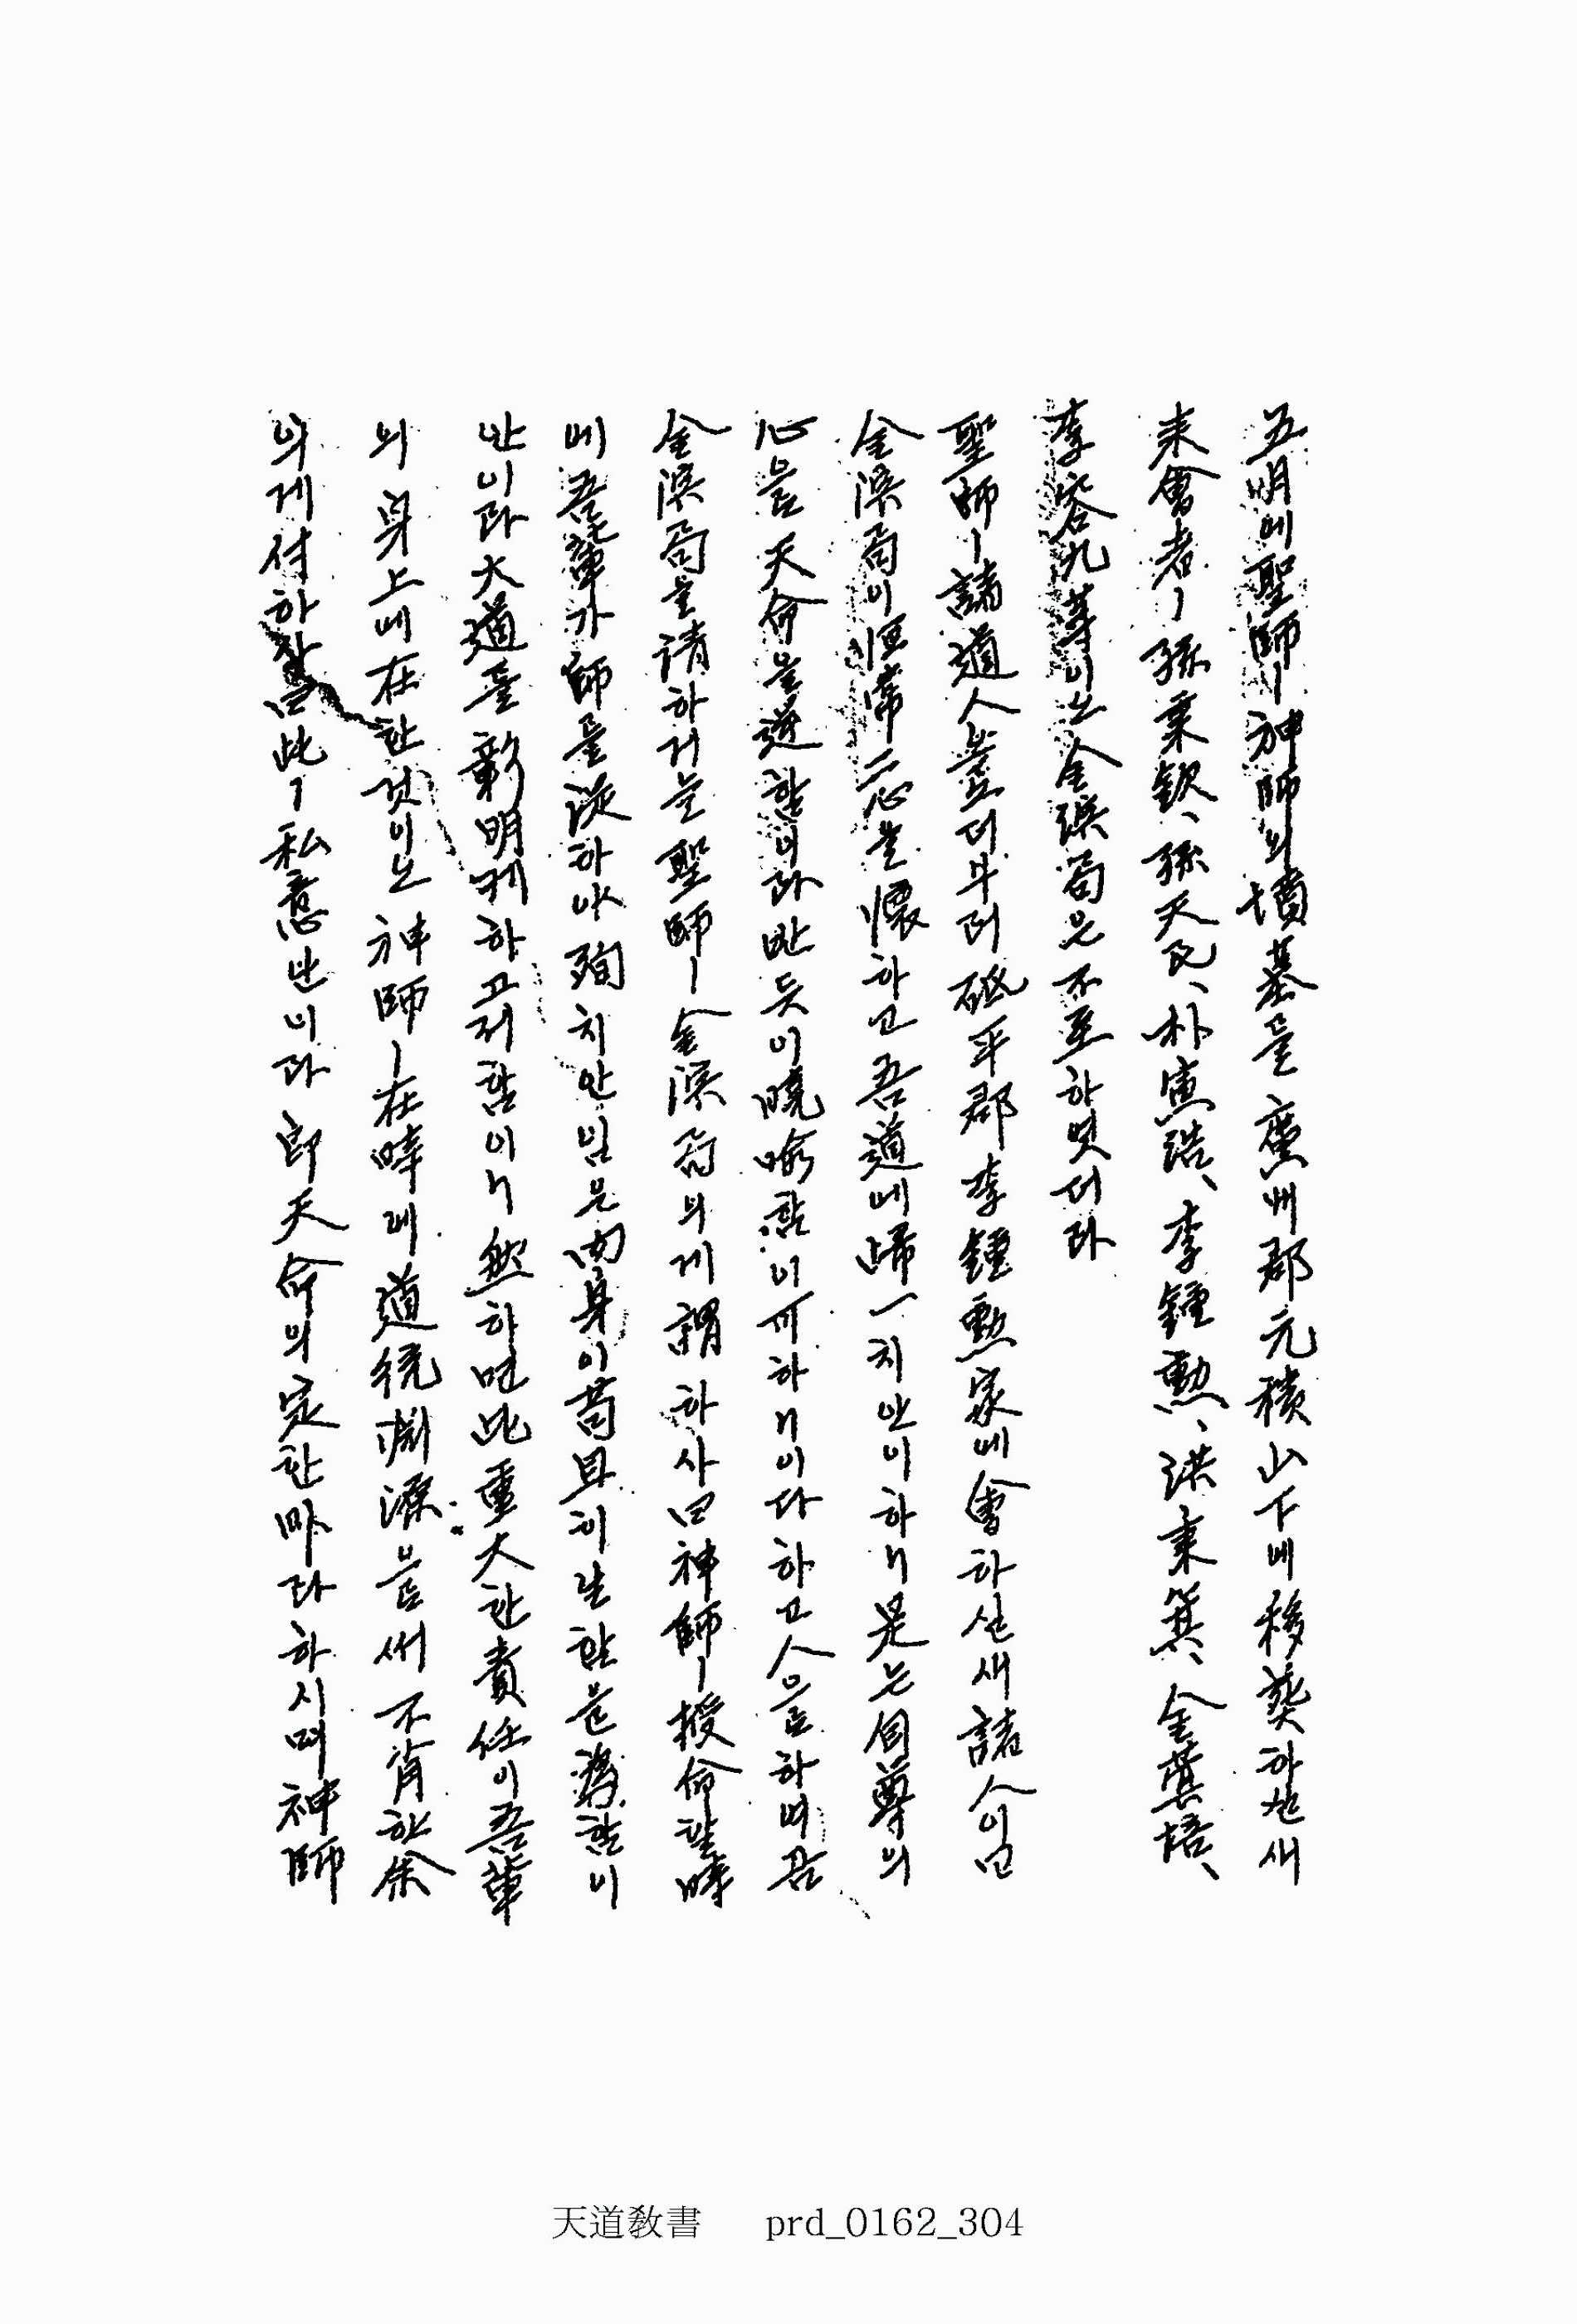 五明에聖師ㅣ神師의墳墓를廣州郡元積山下에移葬하신새
來會者ㅣ孫秉欽、孫天民、朴寅浩、李鍾勳、洪秉箕、金蓂培、
李容九等이오金演局은不至하엿더라
聖師ㅣ諸道人들로더부러砥平郡李鍾勳家에會하신새諸人이曰
金演局이恒常二心을懷하고吾道에歸一치안이하니是는同尊의
心을天命을逆함이라반듯이曉喩함이可하니이다하고人을하며곰
金演局을請하거늘聖師ㅣ金演局의게謂하사曰神師ㅣ授命할時
에吾輩가師를從하야殉치안임은肉身이苟且히날한을爲함이
안이라大道를彰明케하고저함이니然하면此重大한責任이吾輩
의身上에在한것이오神師ㅣ在時에道統淵源을써不肖한余
의게付하심은此ㅣ私意안이라卽天命의定한바라하시며神師
天道敎書 prd_0162_304